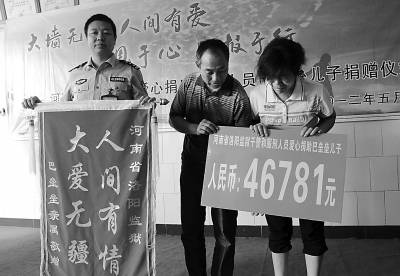 大墙无 人间有爱
用于心 报于行
爱心捐 员 儿子捐赠仪
一二年五月
河南省洛阳监狱
人间有情
大爱无疆
亲属敬赠
河南省洛阳监狱干警和服刑人员爱心捐助巴金垒儿子
人民币：46781元